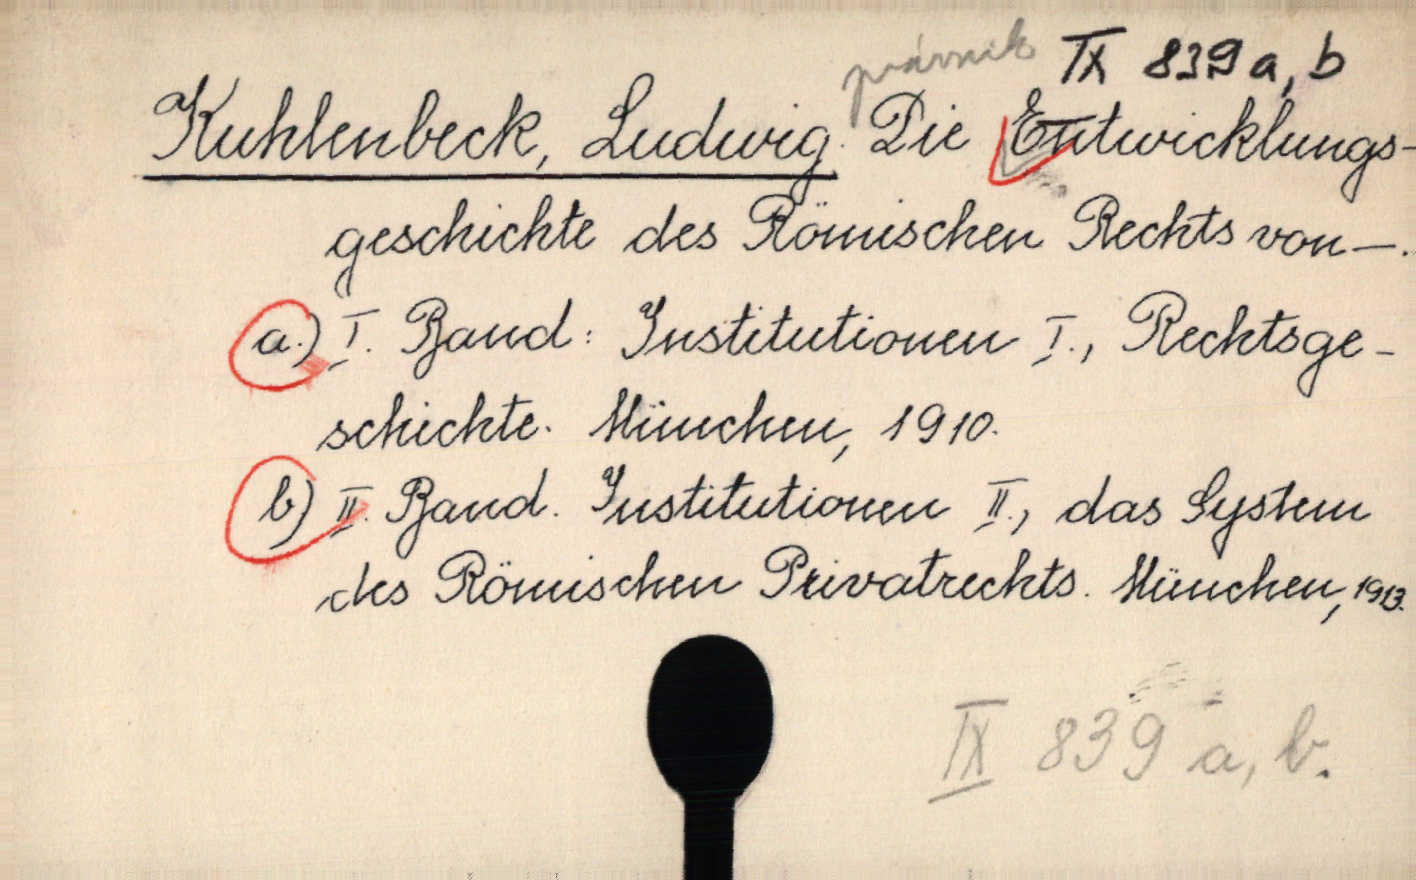 právnik IX 839 a, b
Kuhlenbeck, Ludwig. Die Entwicklungs-
geschichte des Römischen Rechts von —.
a.) I. Band: Institutionen I., Rechtsge-
schichte. München, 1910.
b) II. Band. Institutionen II., das System
des Römischen Privatrechts. München, 1913.
IX 839 a, b.